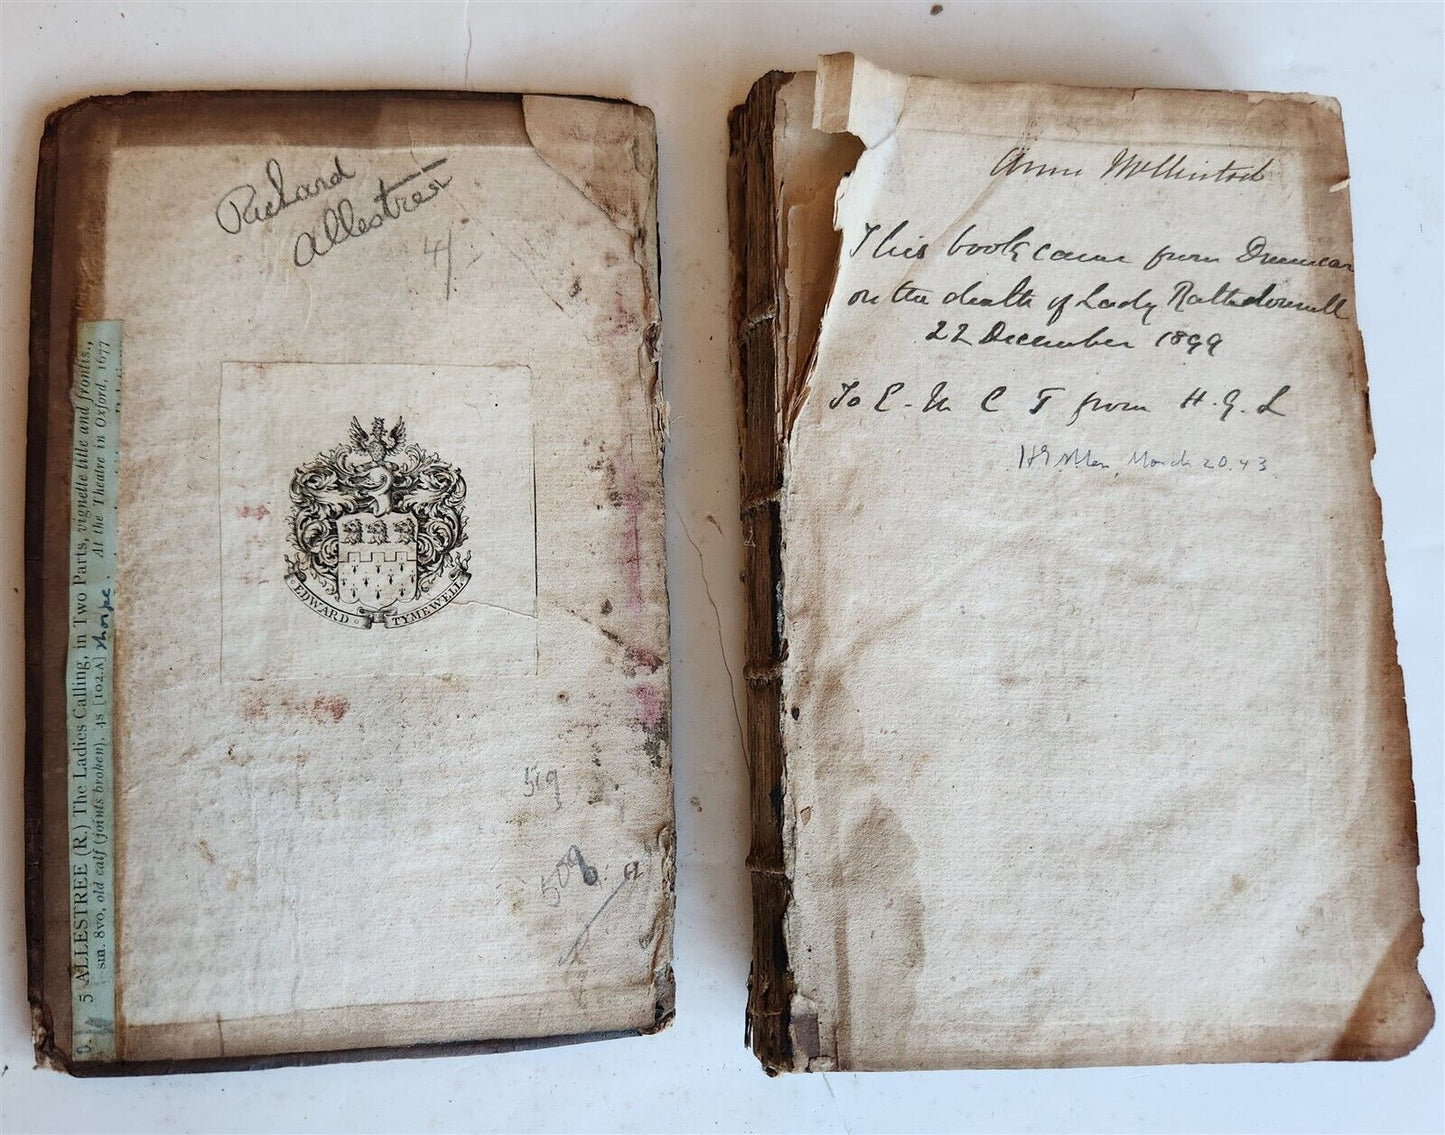 Richard
Allestree
4/-
5 ALLESTREE (R.) The Ladies Calling, in Two Parts, vignette title and frontis.,
sm. 8vo, old calf (joints broken), 4s [102.A] Thorpe. At the Theatre in Oxford, 1677
EDWARD TYMEWELL
519
509
Anne McClintock
This book came from Drumcar
on the death of Lady Rathdonnell
22 December 1899
To E. M C T from H. G. L
March 20. 43